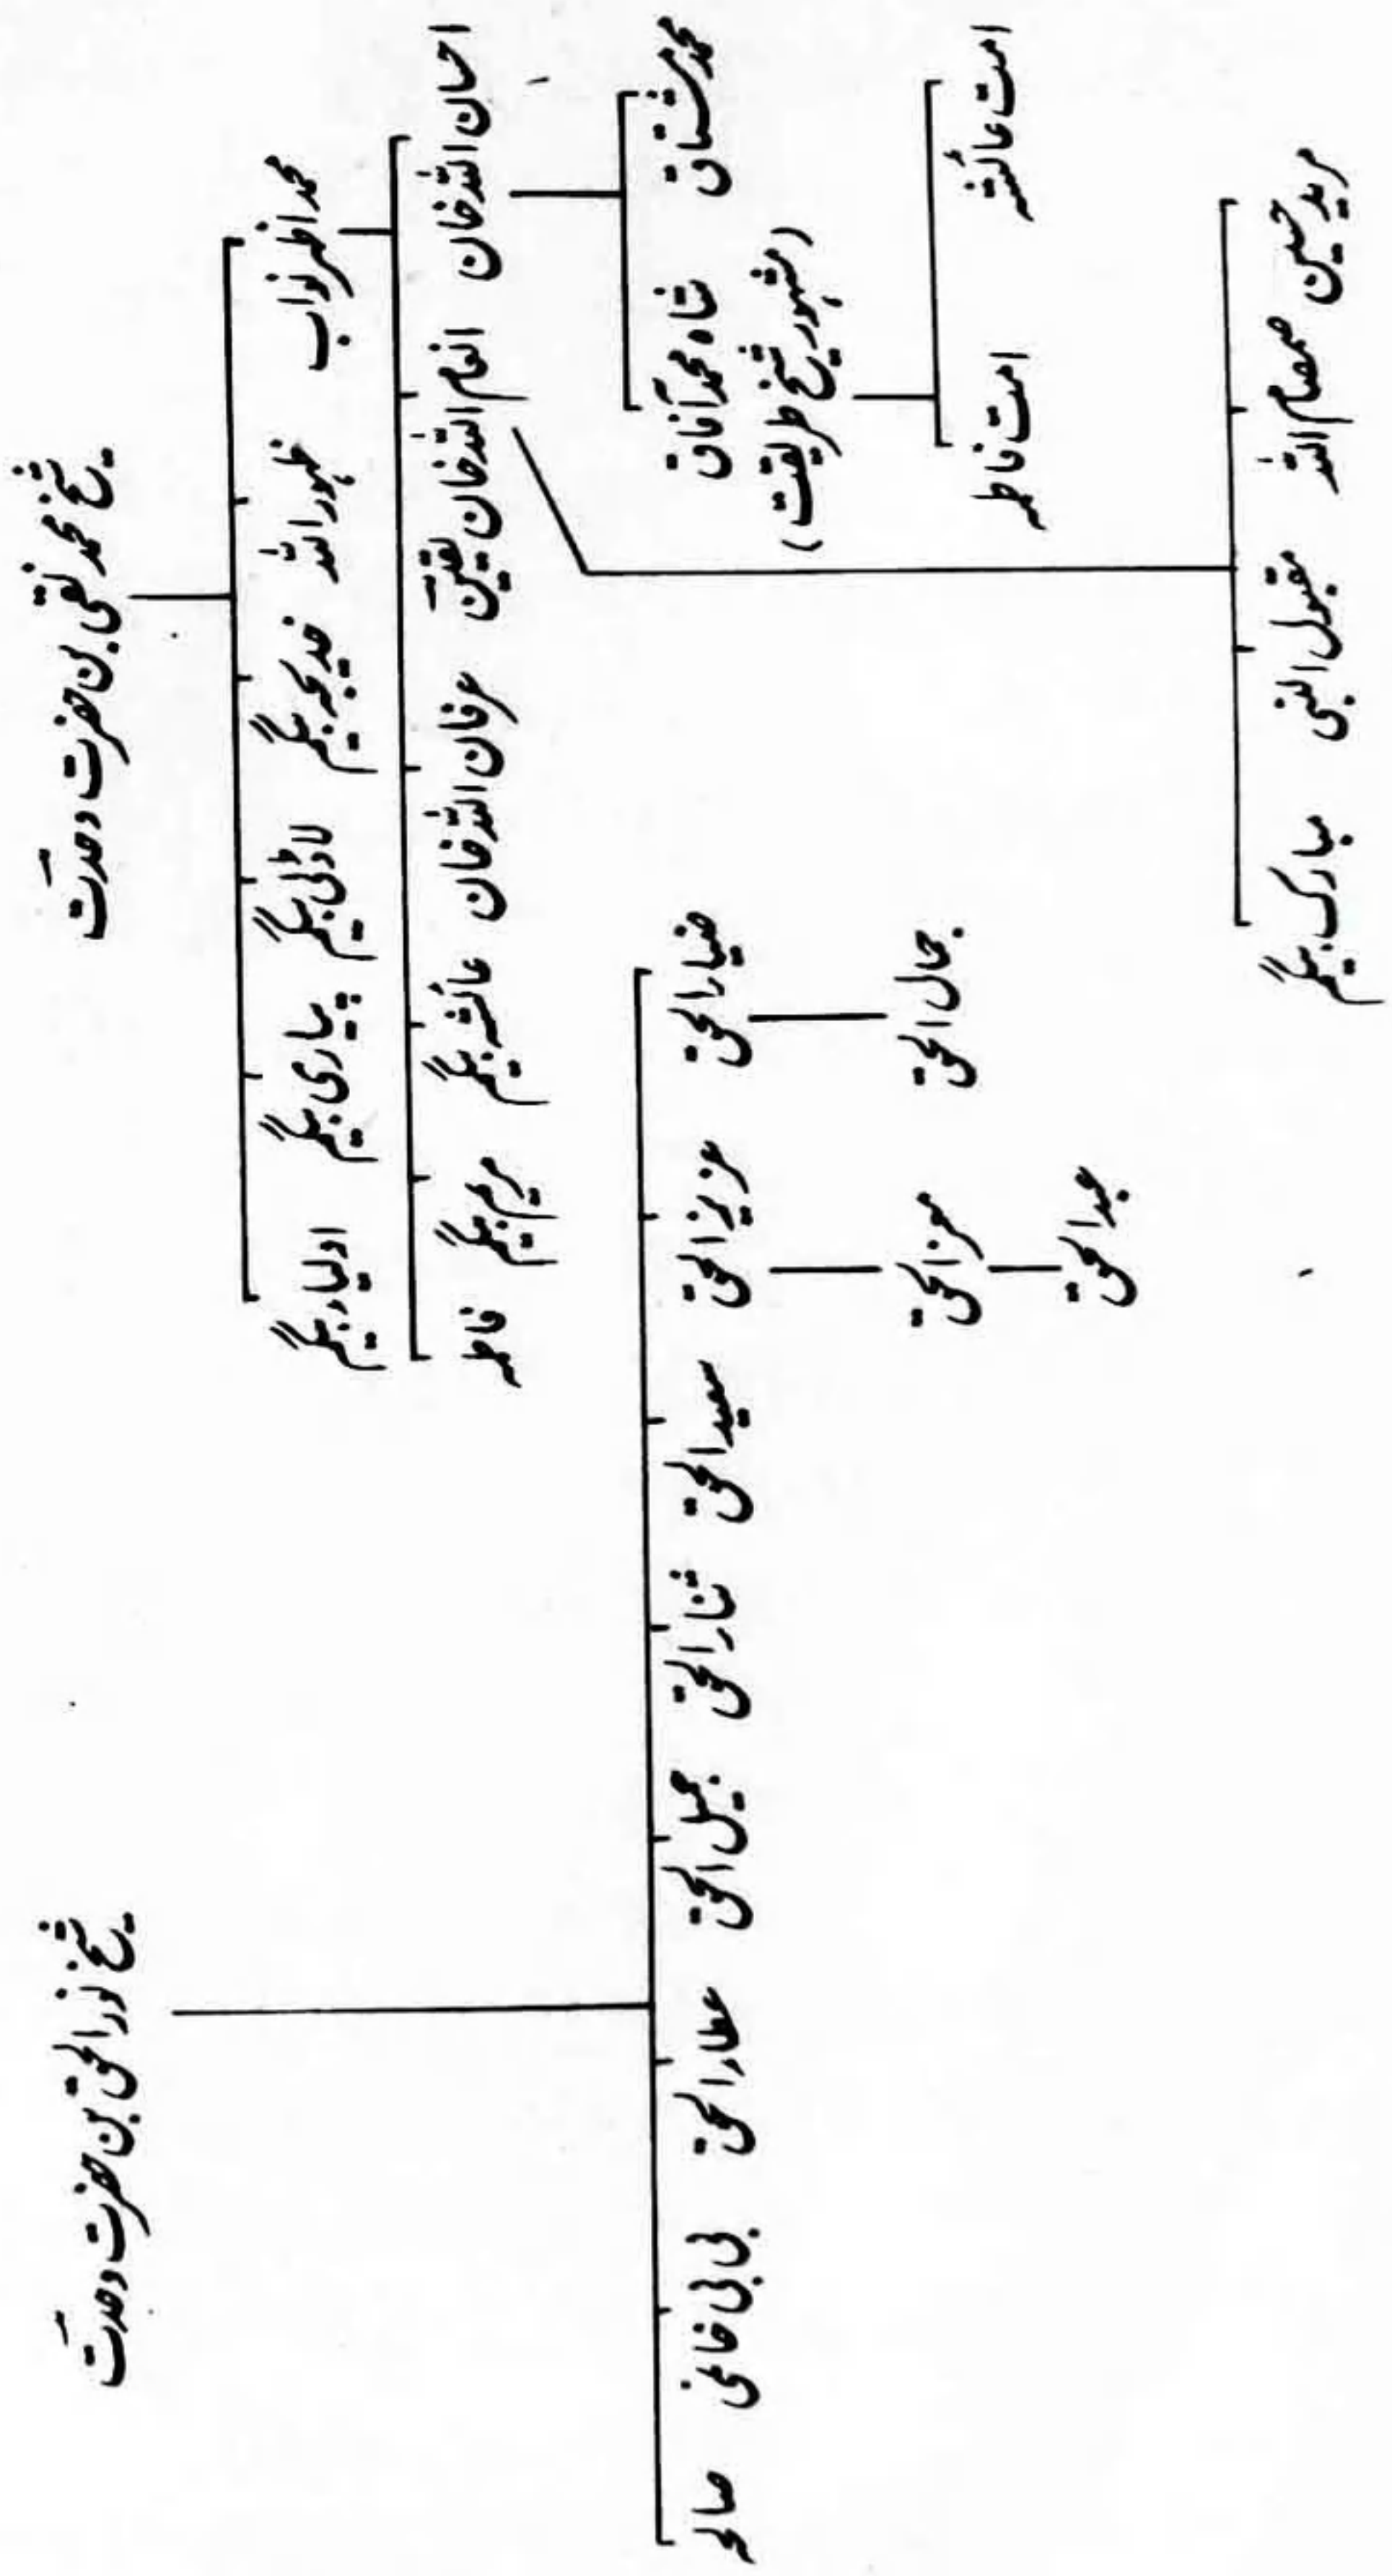 شیخ محمد نقی بن حضرت وحدتؔ
محمد اظہر نواب ظہور اللہ خدیجہ بیگم لاڈلی بیگم پیاری بیگم اولیاء بیگم
احسان اللہ خان انعام اللہ خان یقینؔ عرفان اللہ خان عائشہ بیگم مریم بیگم فاطمہ
محمد مشتاق شاہ محمد آفاق
(مشہور شیخ طریقت)
امت عائشہ امت فاطمہ
مرید حسین صمصام اللہ مقبول النبی مبارک بیگم
شیخ نور الحق بن حضرت وحدتؔ
ضیاء الحق عزیز الحق سعید الحق ثناء الحق جمیل الحق عطاء الحق بی بی صالحہ
جمال الحق معز الحق
عبد الحق